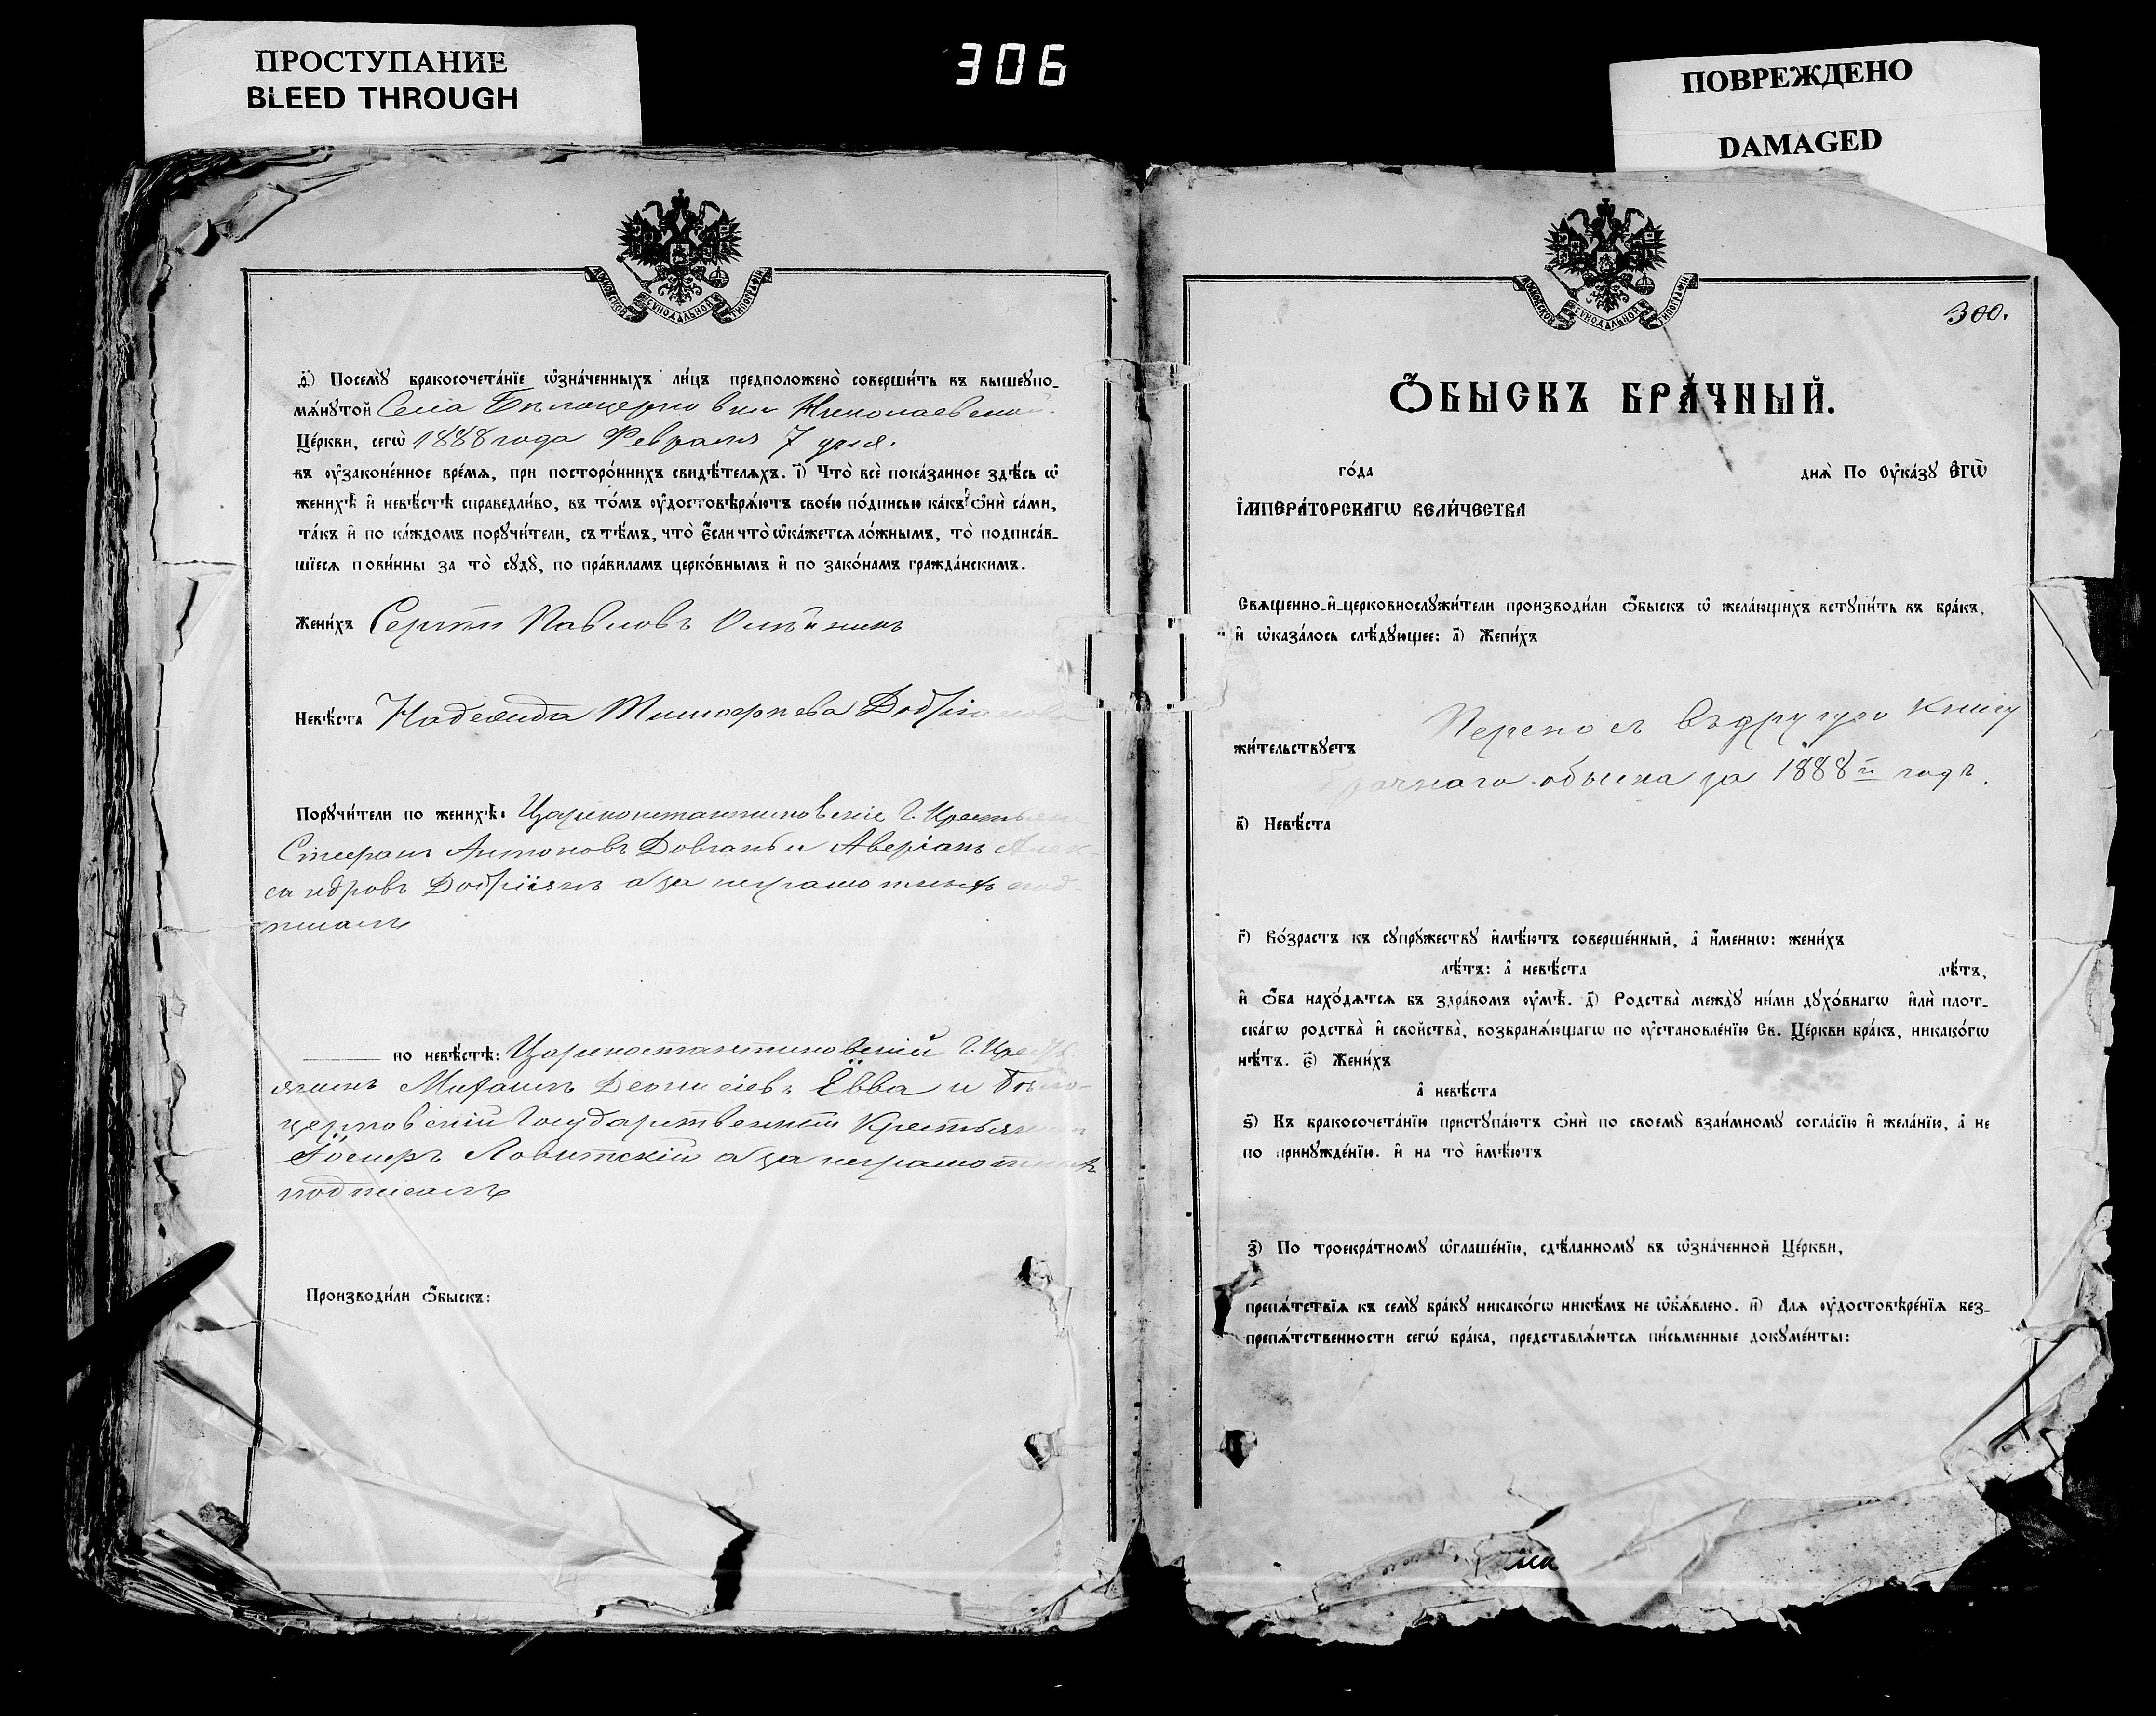 ПРОСТУПАНИЕ
BLEED THROUGH
306
ПОВРЕЖДЕНО
DAMAGED
МОСКОВСКОЙ СѴНОДАЛЬНОЙ ТИПОГРАФІИ
д҃) Посемꙋ̀ бракосочета́нїе ѡ҆зна́ченныхъ ли́цъ предположено̀ соверши́ть въ вышеꙋпо-
мѧ́нꙋтой Села Бѣлоцерковки Николаевской
Це́ркви, сегѡ̀ 1888 года Февраля 7 дня.
въ ᲂу҆законе́нное вре́мѧ, при посторо́ннихъ свидѣ́телѧхъ. і҃) Что̀ всѐ пока́занное здѣ́сь ѡ҆
женихѣ̀ и҆ невѣ́стѣ справедли́во, въ то́мъ ᲂу҆достовѣрѧ́ютъ свое́ю по́дписью ка́къ ѻ҆нѝ са́ми,
та́къ и҆ по ка́ждомъ порꙋчи́тели, съ тѣ́мъ, что̀ є҆́сли что̀ ѡ҆ка́жетсѧ ло́жнымъ, то̀ подписа́в-
шїесѧ пови́нны за то̀ сꙋдꙋ̀, по пра́виламъ церко́внымъ и҆ по зако́намъ гражда́нскимъ.
Жени́хъ Сергѣй Павловъ
Невѣ́ста Надежда Тимофеева
Порꙋчи́тели по женихѣ̀: Цареконстантиновскіе Г. Крестьяне
Стефанъ Антоновъ Довгань и Аверіанъ Алек-
сандровъ а за неграмотныхъ под-
писалъ
по невѣ́стѣ: Цареконстантиновскій Г. Кресть-
янинъ Михаилъ Денисіевъ Евва и Бѣло-
церковскій Государственный Крестьянинъ
Іосифъ а за неграмотныхъ
подписалъ
Производи́ли ѻ҆́быскъ:
МОСКОВСКОЙ СѴНОДАЛЬНОЙ ТИПОГРАФІИ
300.
Ѻ҆́БЫСКЪ БРА́ЧНЫЙ.
го́да днѧ̀ По Оу҆ка́зꙋ Є҆ГѠ̀
І҆МПЕРА́ТОРСКАГѠ ВЕЛИ́ЧЕСТВА
Свѧщенно-и҆-церковнослꙋжи́тели производи́ли ѻ҆́быскъ ѡ҆ жела́ющихъ встꙋпи́ть въ бра́къ,
и҆ ѡ҆каза́лось слѣ́дꙋющее: а҃) Жени́хъ
Перенос въ другую Книгу
жи́тельствꙋетъ
брачнаго обыска за 1888й годъ.
в҃) Невѣ́ста
г҃) Во́зрастъ къ сꙋпрꙋ́жествꙋ и҆мѣ́ютъ соверше́нный, а҆ и҆́меннѡ: жени́хъ
лѣ́тъ: а҆ невѣ́ста лѣ́тъ,
и҆ ѻ҆́ба нахо́дѧтсѧ въ здра́вомъ ᲂу҆мѣ̀. д҃) Родства̀ междꙋ̀ ни́ми дꙋхо́внагѡ и҆лѝ плот-
ска́гѡ родства̀ и҆ свойства̀, возбранѧ́ющагѡ по ᲂу҆становле́нїю Св. Це́ркви бра́къ, никако́гѡ
нѣ́тъ. є҃) Жени́хъ
а҆ невѣ́ста
ѕ҃) Къ бракосочета́нїю пристꙋпа́ютъ ѻ҆нѝ по своемꙋ̀ взаи́мномꙋ согла́сїю и҆ жела́нїю, а҆ не
по принꙋжде́нїю. и҆ на то̀ и҆мѣ́ютъ
з҃) По троекра́тномꙋ ѡ҆глаше́нїю, сдѣ́ланномꙋ въ ѡ҆зна́ченной Це́ркви,
препѧ́тствїѧ къ семꙋ̀ бра́кꙋ никако́гѡ никѣ́мъ не ѡ҆б̾ѧ́влено. и҃) Длѧ ᲂу҆достовѣре́нїѧ без-
препѧ́тственности сегѡ̀ бра́ка, представлѧ́ютсѧ пи́сьменные докꙋме́нты: